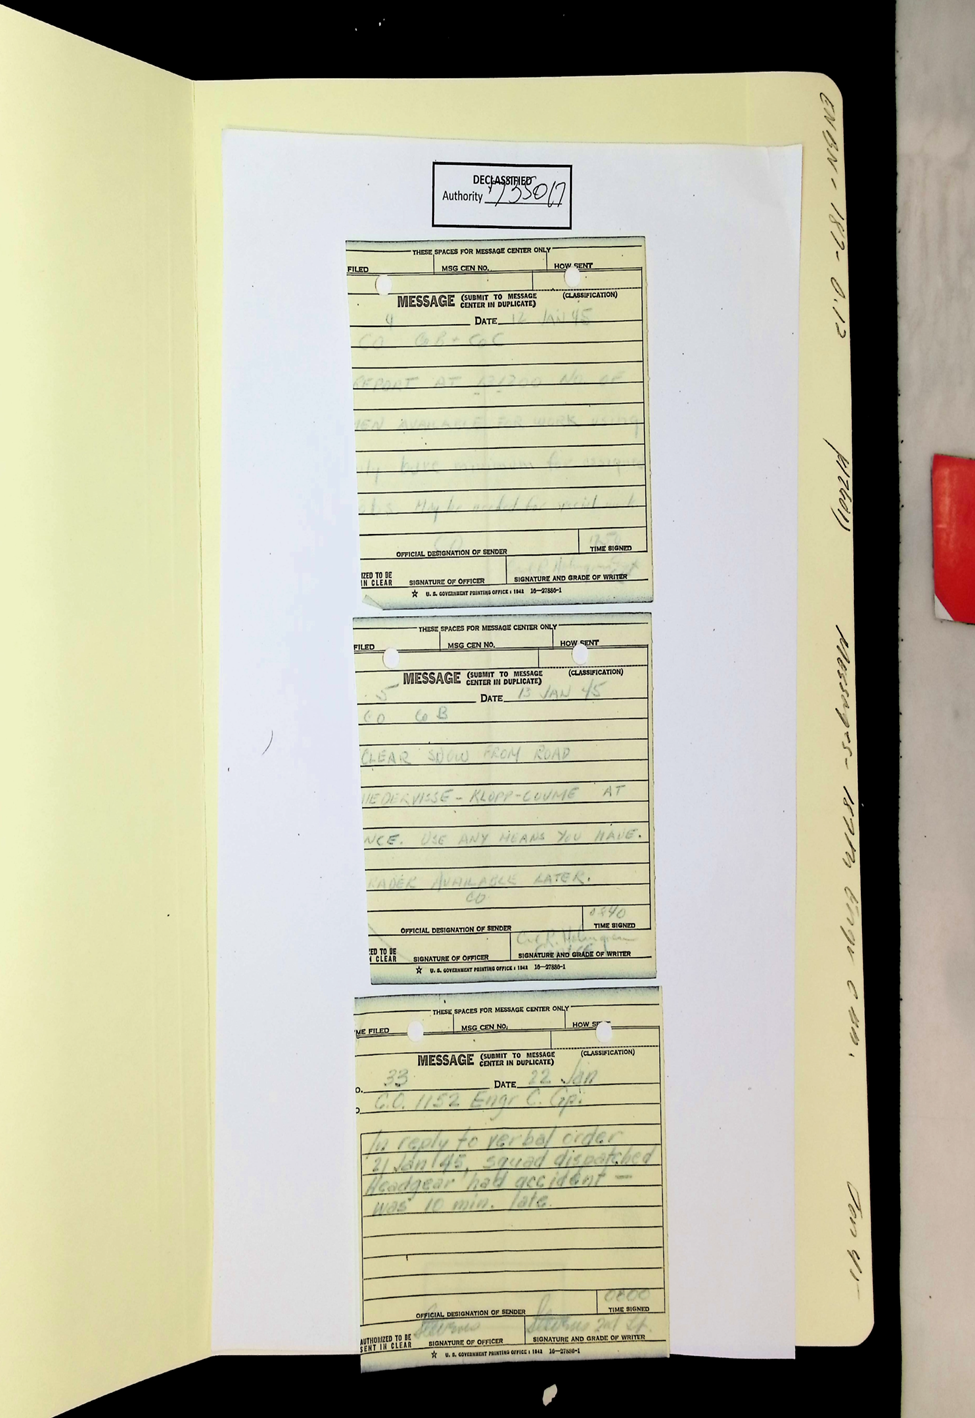 DECLASSIFIED
Authority 735017
THESE SPACES FOR MESSAGE CENTER ONLY
FILED MSG CEN NO. HOW SENT
MESSAGE (SUBMIT TO MESSAGE CENTER IN DUPLICATE) (CLASSIFICATION)
4 DATE 12 JAN 45
CO CoB + CoC
REPORT AT 121300 NO. OF
MEN AVAILABLE FOR WORK using
only bare minimum for
May be needed for special work
CO
OFFICIAL DESIGNATION OF SENDER TIME SIGNED
IZED TO BE
IN CLEAR SIGNATURE OF OFFICER SIGNATURE AND GRADE OF WRITER
☆ U. S. GOVERNMENT PRINTING OFFICE : 1942 16—27886-1
THESE SPACES FOR MESSAGE CENTER ONLY
FILED MSG CEN NO. HOW SENT
MESSAGE (SUBMIT TO MESSAGE CENTER IN DUPLICATE) (CLASSIFICATION)
5 DATE 13 JAN 45
CO Co B
CLEAR SNOW FROM ROAD
NIEDERVISSE - KLOPP-COUME AT
NCE. USE ANY MEANS YOU HAVE.
RADER AVAILABLE LATER.
CO
0840
OFFICIAL DESIGNATION OF SENDER TIME SIGNED
ZED TO BE
N CLEAR SIGNATURE OF OFFICER SIGNATURE AND GRADE OF WRITER
☆ U. S. GOVERNMENT PRINTING OFFICE : 1942 16—27886-1
THESE SPACES FOR MESSAGE CENTER ONLY
ME FILED MSG CEN NO. HOW SENT
MESSAGE (SUBMIT TO MESSAGE CENTER IN DUPLICATE) (CLASSIFICATION)
O. 33 DATE 22 Jan
O C.O. 1152 Engr C. Gp.
In reply to verbal order
21 Jan 45, squad dispatched
Headgear had accident —
was 10 min. late.
0800
OFFICIAL DESIGNATION OF SENDER TIME SIGNED
Stevens Stevens 2nd Lt.
AUTHORIZED TO BE
SENT IN CLEAR SIGNATURE OF OFFICER SIGNATURE AND GRADE OF WRITER
☆ U. S. GOVERNMENT PRINTING OFFICE : 1942 16—27886-1
ENBN - 187 - 0.13
Messages - 187th Engr C Bn.
Jan 45